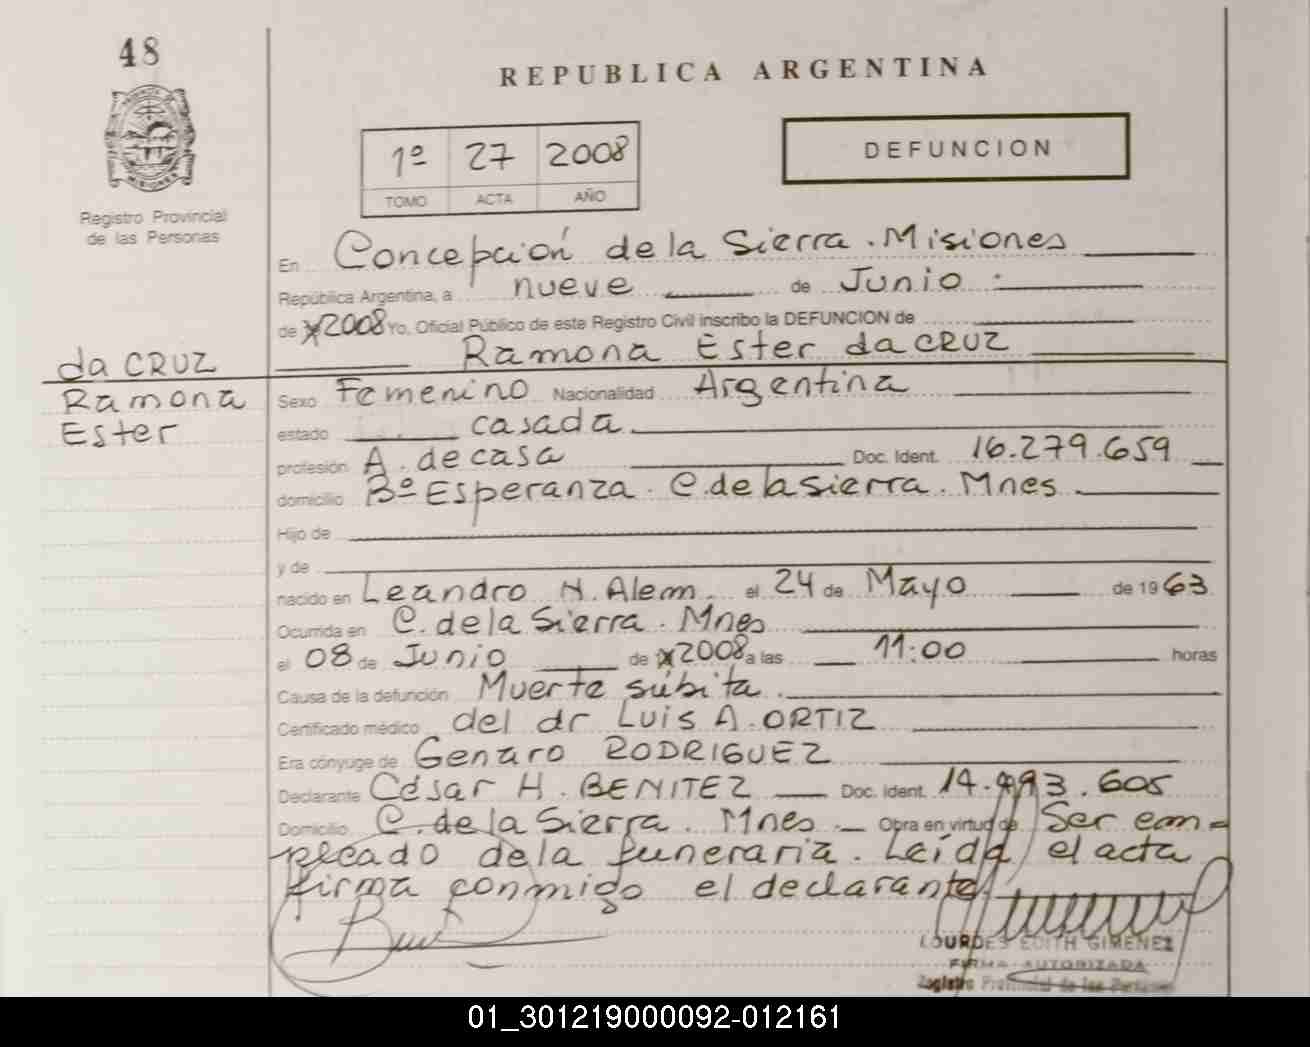 48
REPUBLICA ARGENTINA
1º 27 2008
TOMO ACTA AÑO
DEFUNCION
PROVINCIA DE
MISIONES
Registro Provincial
de las Personas
En Concepción de la Sierra. Misiones
República Argentina, a nueve de Junio
de 2008 Yo, Oficial Público de este Registro Civil inscribo la DEFUNCION de
Ramona Ester da CRUZ
da CRUZ
Ramona
Ester
Sexo Femenino Nacionalidad Argentina
estado casada
profesión A. de casa Doc. Ident. 16.279.659
domicilio Bº Esperanza. C. de la Sierra. Mnes.
Hijo de
y de
nacido en Leandro N. Alem. el 24 de Mayo de 1963
Ocurrida en C. de la Sierra. Mnes
el 08 de Junio de 2008 a las 11:00 horas
Causa de la defunción Muerte súbita.
Certificado médico del dr Luis A. ORTIZ
Era cónyuge de Genaro RODRIGUEZ
Declarante César H. BENITEZ Doc. Ident. 14.993.605
Domicilio C. de la Sierra. Mnes. Obra en virtud de Ser em-
pleado de la funeraria. Leída el acta
firma conmigo el declarante.
LOURDES EDITH GIMENEZ
FIRMA AUTORIZADA
Registro Provincial de las Personas
01_301219000092-012161